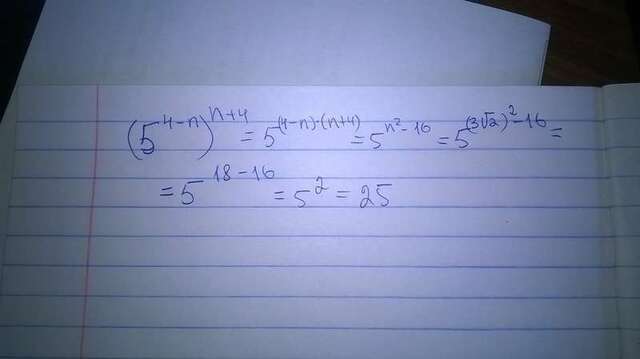 (5^{4-n})^{n+4} = 5^{(4-n)·(n+4)} = 5^{n²-16} = 5^{(3√2)²-16} =
= 5^{18-16} = 5² = 25